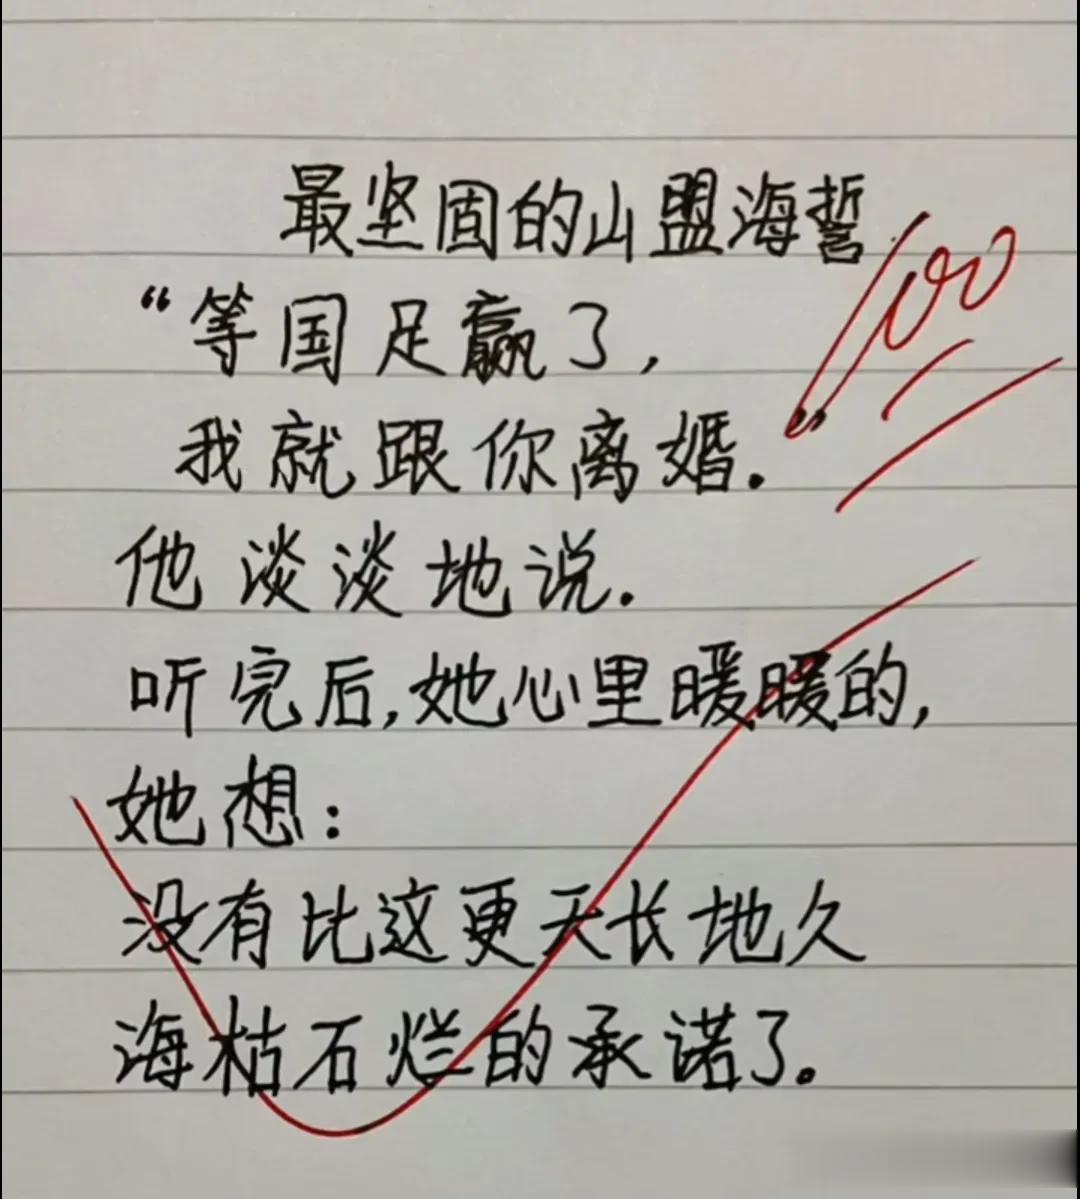 最坚固的山盟海誓
“等国足赢了,
我就跟你离婚.”
他淡淡地说.
听完后,她心里暖暖的,
她想:
没有比这更天长地久
海枯石烂的承诺了。
100